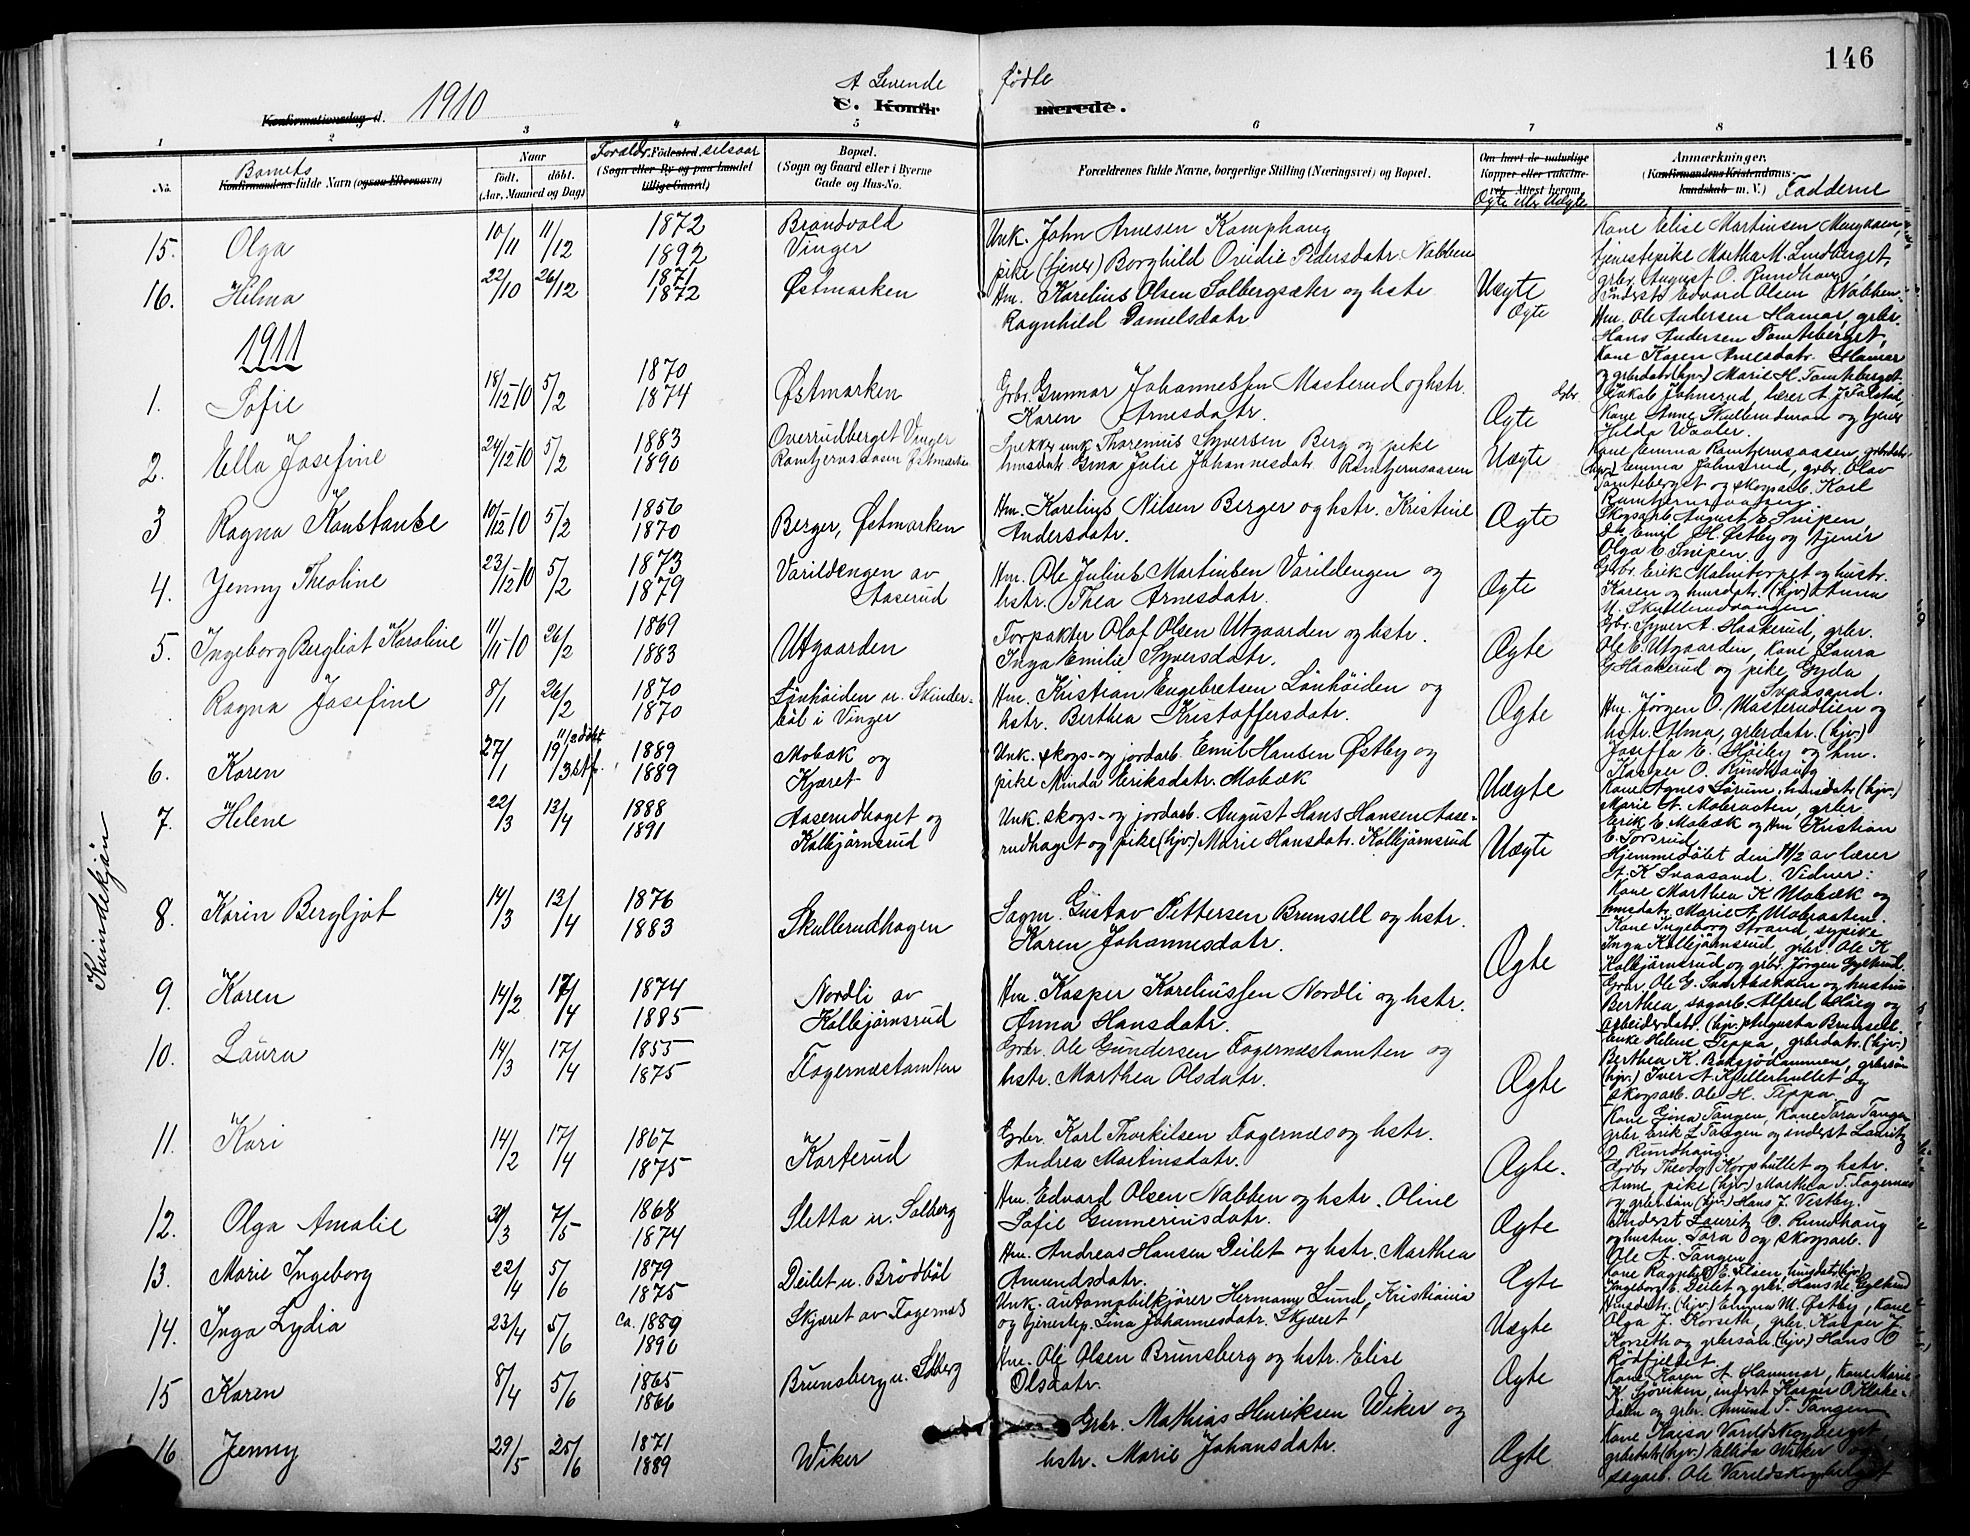 146
1910
A. Levende fødte
C. Konfirmerede.
Konfirmationsdag d.
1 2 3 4 5 6 7 8
No.
Barnets
Konfirmandens fulde Navn (ogsaa Efternavn)
Naar
født. døbt.
(Aar, Maaned og Dag)
Foreldr. Fødested. selsaar
(Sogn eller By og paa landet tillige Gaard)
Bopæl.
(Sogn og Gaard eller i Byerne Gade og Hus-No.
Forældrenes fulde Navne, borgerlige Stilling (Næringsvei) og Bopæl.
Om havt de naturlige Kopper eller vaccineret, Attest herom
Ægte eller Uægte
Anmærkninger.
(Konfirmandens Kristendomskundskab m. V.) Fadderne
15. Olga 10/11 11/12 1872 1892 Brandvold Vinger
Unk. John Arnesen Kamphaug
pike (tjener) Borghild Ovidie Pedersdatr. Nabben Uægte
Kone Elise Martinsen
tjenestepike Martha M. Lundberget,
grbr. August O. Rundhaug,
Inderst Edvard Olsen Nabben
16. Helma 22/10 26/12 1871 1872 Østmarken
Hm. Karelius Olsen Solbergsæter og hstr.
Ragnhild Danielsdatr. Ægte
Hm. Ole Andersen Hamar, grbr.
Hans Andersen Tomteberget,
Kone Karen Arnesdatr. Hamar
og grbrdatr. (hjv.) Marie H. Tomteberget
1911
1. Sofie 18/12-10 5/2 1870 1874 Østmarken
Grbr. Gunnar Johannessen Masterud og hstr.
Karen Arnesdatr. Ægte
Grbr. Jakob Johnsrud, lærer A. J. Falstad,
Kone Anne Skullerudmoen og tjener
Hilda Waaler.
2. Ella Josefine 24/12-10 5/2 1883 1890 Overrudberget Vinger
Ramtjernsaasen Østmarken
unk. Thoremus Syversen Berg og pike
hmsdatr. Gina Julie Johannesdatr. Ramtjernsaasen Uægte
Kone Emma Ramtjernsaasen, grbrdatr.
(hjv.) Emma Johnsrud, grbr. Olav
Tomteberget og skogsarb. Karl
Ramtjernsaasen
3 Ragna Konstanse 10/12-10 5/2 1856 1870 Berger, Østmarken
Hm. Karelius Nilsen Berger og hstr. Kristine
Andersdatr. Ægte
Skogsarb. August E. Snipen,
Do. Emil H. Østby og tjener
Olga E. Snipen.
4. Jenny Theoline 23/12-10 5/2 1873 1879 Varildengen av
Aaserud
Hm. Ole Julius Martinsen Varildengen og
hstr. Thea Arnesdatr. Ægte
Grbr. Erik Malmtorpet og hustr.
Karen og hmsdatr. (hjv.) Anna
M. Skullerudvangen.
5. Ingeborg Bergliot Karoline 11/11-10 26/2 1869 1883 Utgaarden
Forpakter Olaf Olsen Utgaarden og hstr.
Inga Emilie Syversdatr. Ægte
Grbr. Syver A. Haakerud, grbr.
Ole E. Utgaarden, Kone Laura
G. Haakerud og pike Gyda
Svaasand.
Ragna Josefine 8/1 26/2 1870 1870 Lønhøiden u. Skinder-
bøl i Vinger
Hm. Kristian Engebretsen Lønhøiden og
hstr. Berthea Kristoffersdatr. Ægte
Hm. Jørgen O. Masterudlien og
hstr. Alma, grbrdatr. (hjv.)
Josefa E. Høiby og hm.
Kasper O. Rundhaug
6. Karen 27/1 11/2 døbt 19/3 stf. 1889 1889 Mobæk og
Kjæret
Unk. skogs- og jordarb. Emil Hansen Østby og
pike Minda Eriksdatr. Mobæk Uægte
Kone Agnes Sørum, hmsdatr. (hjv.)
Marie A. Mobraaten, grbr.
Erik E. Mobæk og Hm. Kristian
E. Torsrud
Hjemmedøbt den 11/2 av lærer
A. K. Svaasand. Vidner:
Kone Marthea K. Mobæk og
hmsdatr. Marie A. Mobraaten.
7. Helene 22/3 13/4 1888 1891 Aaserudhaget og
Kolbjørnsrud
Unk. skogs- og jordarb. August Hans Hansen Aase-
rudhaget og pike (hjv.) Marie Hansdatr. Kolbjørnsrud Uægte
Kone Ingeborg Strand, sypike
Inga Kolbjørnsrud, grbr. Ole K.
Kolbjørnsrud og grbr. Jørgen Gylterud.
8. Karin Bergljot 14/3 13/4 1876 1883 Skullerudhagen
Sagm. Gustav Pettersen Brunsell og hstr.
Karen Johannesdatr. Ægte
Grbr. Ole G. og hustru
Berthea, sagarb. Alfred Høieg og
arbeiderdatr. (hjv.) Augusta Brunsell.
9. Karen 14/2 17/4 1874 1885 Nordli av
Kolbjørnsrud
Hm. Kasper Kareliussen Nordli og hstr.
Anna Hansdatr.
Enke Helene Teppa, grbrdatr. (hjv.)
Berthea K. Baksjødammen, grbrsøn
(hjv.) Iver A. og
skogsarb. Ole H. Teppa.
10. Laura 14/3 17/4 1855 1875 Fagernæstomten
Grbr. Ole Gundersen Fagernæstomten og
hstr. Marthea Olsdatr. Ægte
Kone Gina Tangen, Kone Tara Tangen
grbr. Erik L. Tangen og inderst Lauritz
O. Rundhaug.
11. Kari 14/2 17/4 1867 1875 Karterud
Grbr. Karl Thorkilsen Fagernæs og hstr.
Andrea Martinsdatr. Ægte.
Grbr. Theodor Korphullet og hstr.
Anne, pike (hjv.) Marthea T. Fagernæs
og grbrsøn (hjv.) Hans J. Vestby.
12. Olga Amalie 31/3 7/5 1868 1874 Sletta u. Solberg
Hm. Edvard Olsen Nabben og hstr. Oline
Sofie Gunneriusdatr. Ægte
Inderst Lauritz O. Rundhaug
og hustru Tara og skogsarb.
Ole A. Tangen
13. Marie Ingeborg 22/4 5/6 1879 1875 Deilet u. Brødbøl
Hm. Andreas Hansen Deilet og hstr. Marthea
Amundsdatr. Ægte
Kone Ragnhild E. Elisen, hmsdatr. (hjv.)
Ingeborg E. Deilet og grbr. Hans K. Gylterud
14. Inga Lydia 23/4 5/6 ca. 1889 1890 Skjæret av Fagernæs
Unk. automobilkjører Hermann Lund, Kristiania
og tjenestep. Lina Johannesdatr. Skjæret Uægte
Hmsdatr. (hjv.) Emma M. Østby, Kone
Olga J. Korseth, grbr. Kasper J.
Korseth og grbrsøn (hjv.) Hans O.
Rødfjeldet
15 Karen 8/4 5/6 1865 1866 Brunsberg u. Solberg
Hm. Ole Olsen Brunsberg og hstr. Elise
Olsdatr. Ægte
Kone Karen A. Hammar, Kone Marie
K. Sjøviken, inderst Kasper O. Kloke-
dalen og grbr. Amund T. Tangen
16 Jenny 29/5 25/6 1871 1889 Wiker
Grbr. Mathias Henriksen Wiker og
hstr. Marie Johansdatr. Ægte
Kone Kaisa Varildskogberget
grbrdatr. (hjv.) Elida Wiker og
sagarb. Ole Varildskogberget
Kvindekjøn